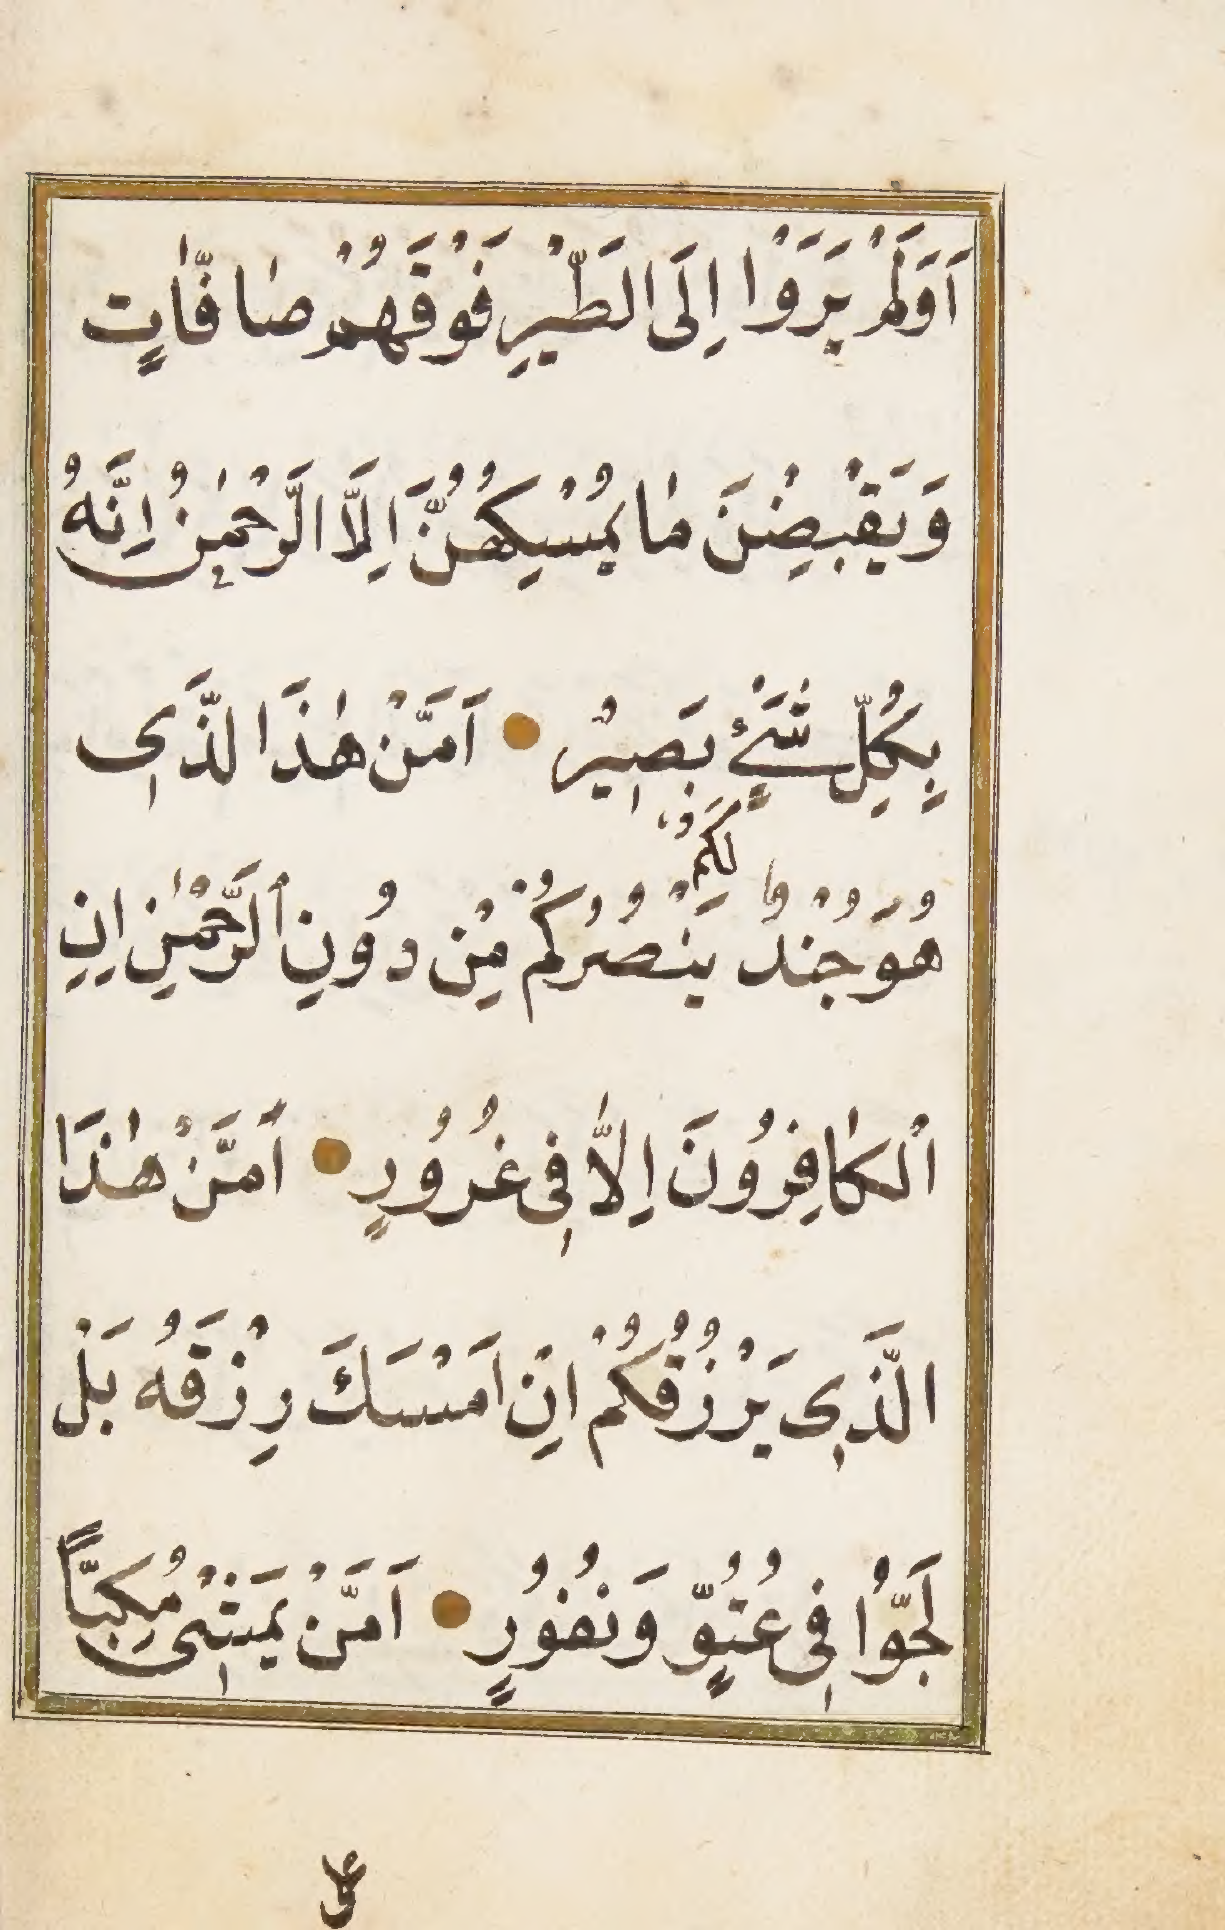 اَوَلَمْ يَرَوْا اِلَى الطَّيْرِ فَوْقَهُمْ صٰافّٰاتٍ
وَيَقْبِضْنَ مٰا يُمْسِكُهُنَّ اِلَّا الرَّحْمٰنُ اِنَّهُ
بِكُلِّ شَيْئٍ بَصِيْرٌ اَمَّنْ هٰذَا الَّذِى
لَكُمْ
هُوَ جُنْدٌ يَنْصُرُكُمْ مِنْ دُونِ الرَّحْمٰنِ اِنِ
الْكٰافِرُونَ اِلَّا فِى غُرُورٍ اَمَّنْ هٰذَا
الَّذِى يَرْزُقُكُمْ اِنْ اَمْسَكَ رِزْقَهُ بَلْ
لَجُّوا فِى عُتُوٍّ وَنُفُورٍ اَمَّنْ يَمْشِى مُكِبًّا
على